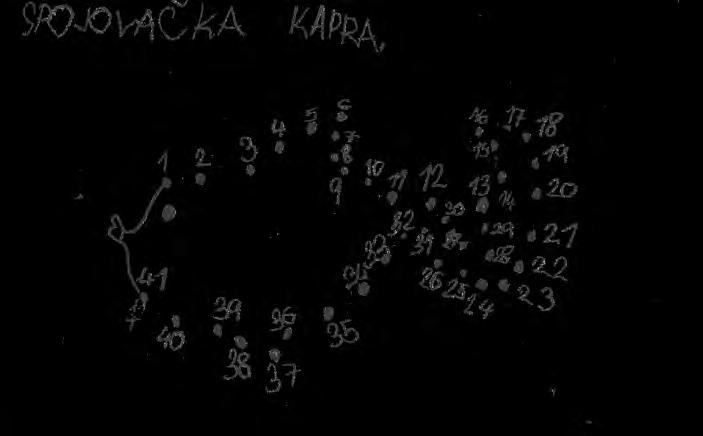 SPOJOVAČKA KAPRA.
1 2 3 4 5 6
7
8
9
10
11
12
13
14
15
16
17
18
19
20
21
22
23
24
25
26
28
29
30
31
32
33
34
35
36
37
38
39
40
41